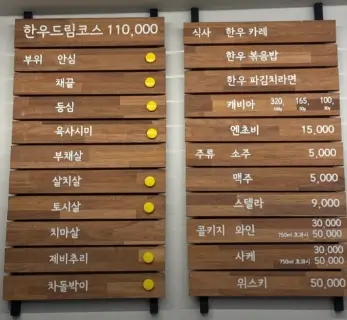 한우드림코스 110,000
부위 안심
채끝
등심
육사시미
부채살
살치살
토시살
치마살
제비추리
차돌박이
식사 한우 카레
한우 볶음밥
한우 파김치라면
캐비아 320, 165, 100,
엔초비 15,000
주류 소주 5,000
맥주 5,000
스텔라 9,000
콜키지 와인 30,000
750ml 초과시 50,000
사케 30,000
750ml 초과시 50,000
위스키 50,000